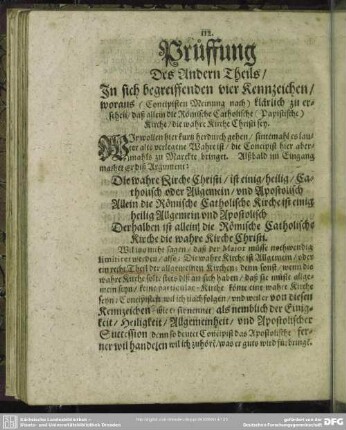 112.
Prüffung
Des Andern Theils/
In sich begreiffenden vier Kennzeichen/
woraus (Concipisten Meinung nach) klärlich zu er-
scheit/ daß allein die Römische Catholische (Papistische)
Kirche/ die wahre Kirche Christi sey.
Wir wollen hier kurtz herdurch gehen/ sintemahl es lau-
ter alte verlegene Wahre ist/ die Concipist hier aber-
mahls zu Marckte bringet. Alßbald im Eingang
machet er diß Argument:
Die wahre Kirche Christi/ ist einig/ heilig/ Ca-
tholisch oder Allgemein/ vnd Apostolisch
Allein die Römische Catholische Kirche ist einig
heilig Allgemein vnd Apostolisch
Derhalben ist allein die Römische Catholische
Kirche die wahre Kirche Christi.
Wil itzo nicht sagen/ daß der Maior müste nothwendig
limitiret werden/ also: Die wahre Kirche ist Allgemein/ oder
ein recht Theil der allgemeinen Kirchen; denn sonst/ wenn die
wahre Kirche solte stets diß an sich haben/ daß sie müste allge-
mein seyn/ keine particular-Kirche köme eine wahre Kirche
seyn/ Concipisten wil ich nachfolgen/ vnd weil er von diesen
Kennzeichen alles einnimmt als nemblich der Einig-
keit/ Heiligkeit/ Allgemeinheit/ vnd Apostolischer
Succession denn so deutet Concipist das Apostolische fer-
ner wil handelen wil ich zuhörē/ was er guts wird fürbringē.